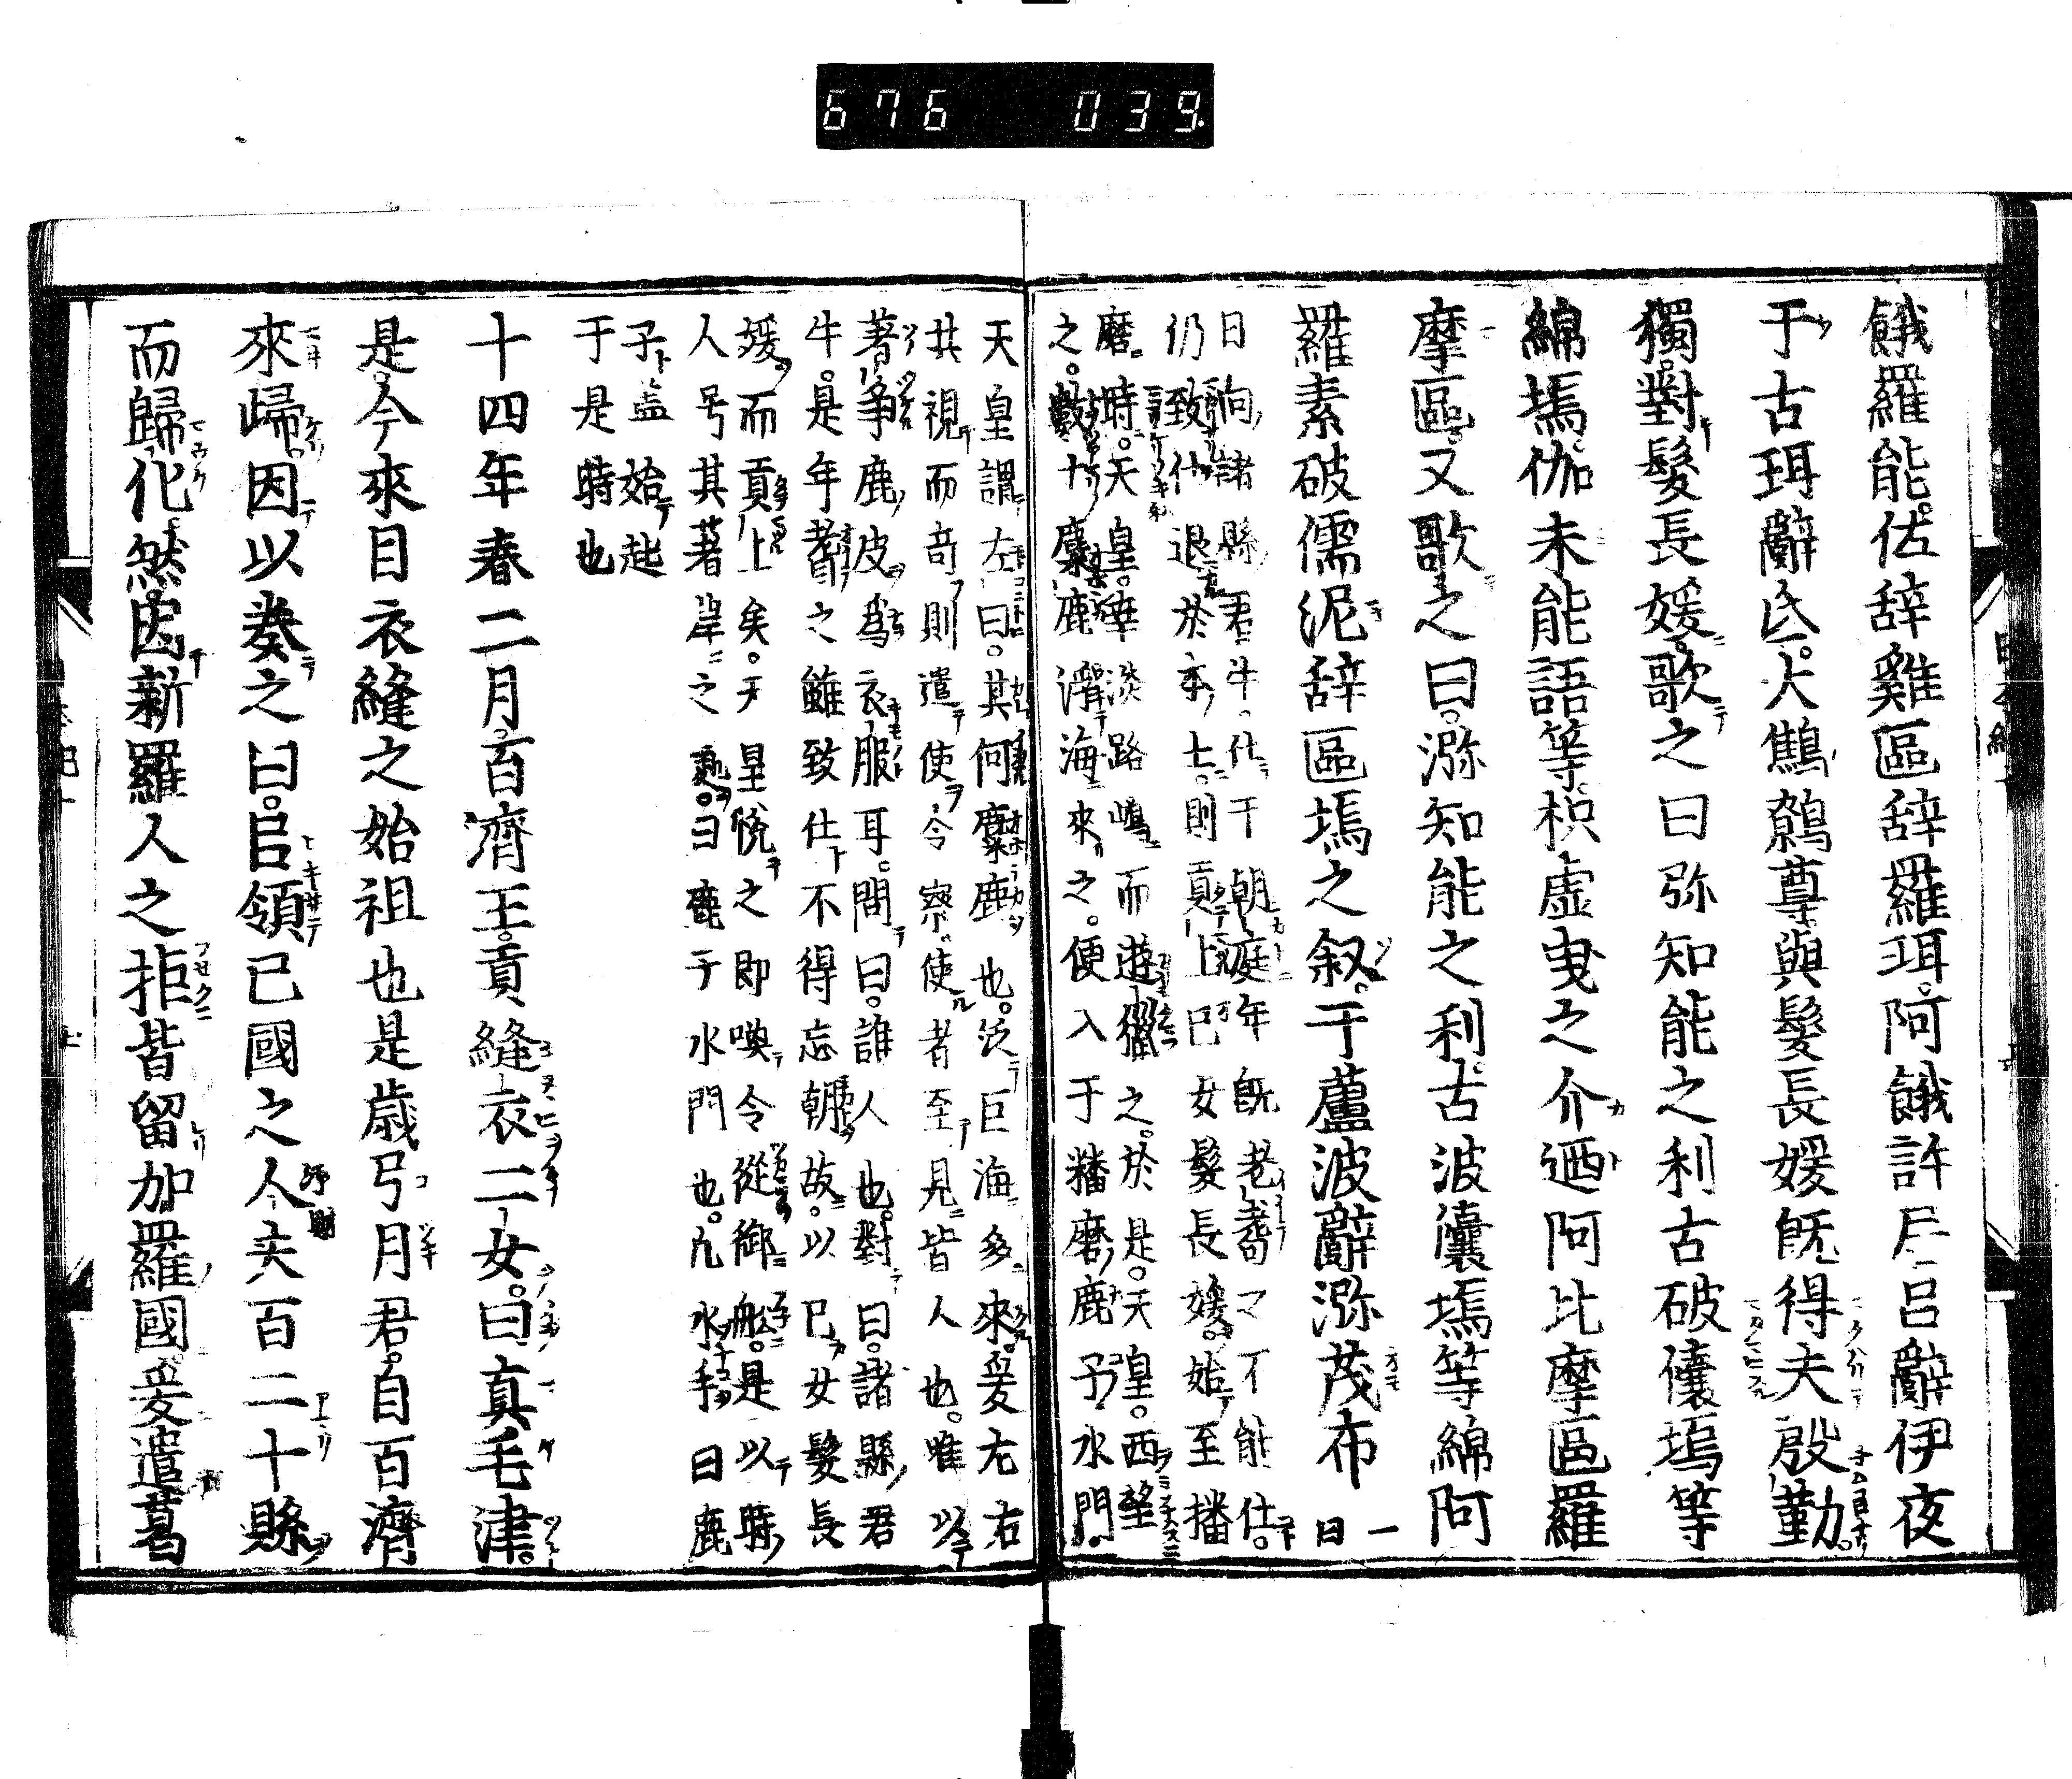 676 039
餓羅能佐辞雞區辞羅珥阿餓許居呂辭伊夜
于古珥辭氐大鷦鷯尊與髮長媛既得夫殷勤
獨對髮長媛歌之曰弥知能之利古破儴塢等
綿塢伽未能語等枳虛曳之介廼阿比摩區羅
摩區又歌之曰瀰知能之利古波儴塢等綿阿
羅素破儒泥辞區塢之叙于蘆波辭瀰茂布一曰
日向諸縣君牛仕于朝庭年既老耆之不能仕
仍致仕退於本土則貢上己女髮長媛始至播
磨時天皇幸淡路嶋而遊獵之於是天皇西望
之數十麋鹿浮海來之便入于播磨鹿子水門
天皇謂左右曰其何麋鹿也泛巨海多來爰左右
共視而奇則遣使令察使者至見皆人也唯以
著角鹿皮爲衣服耳問曰誰人也對曰諸縣君
牛是年耆之雖致仕不得忘朝故以己女髮長
媛而貢上矣天皇悅之即喚令從御船是以時
人号其著岸之處曰鹿子水門也凡水手曰鹿
子盖始起
于是時也
十四年春二月百濟王貢縫衣二女曰真毛津
是今來目衣縫之始祖也是歲弓月君自百濟
來歸因以奏之曰臣領己國之人夫百二十縣
而歸化然因新羅人之拒皆留加羅國爰遣葛